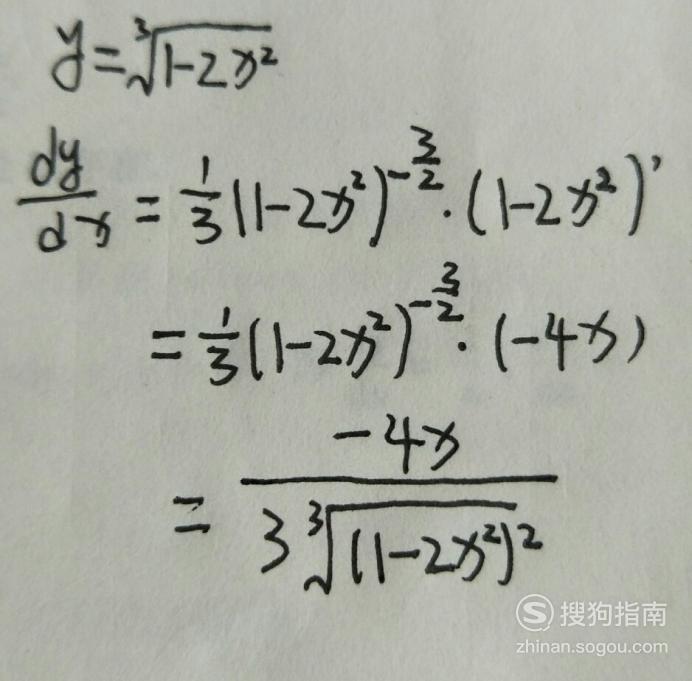 y=∛(1-2x²)
dy/dx = 1/3 (1-2x²)^(-3/2) · (1-2x²)'
= 1/3 (1-2x²)^(-3/2) · (-4x)
= -4x / 3∛((1-2x²)²)
S 搜狗指南
zhinan.sogou.com